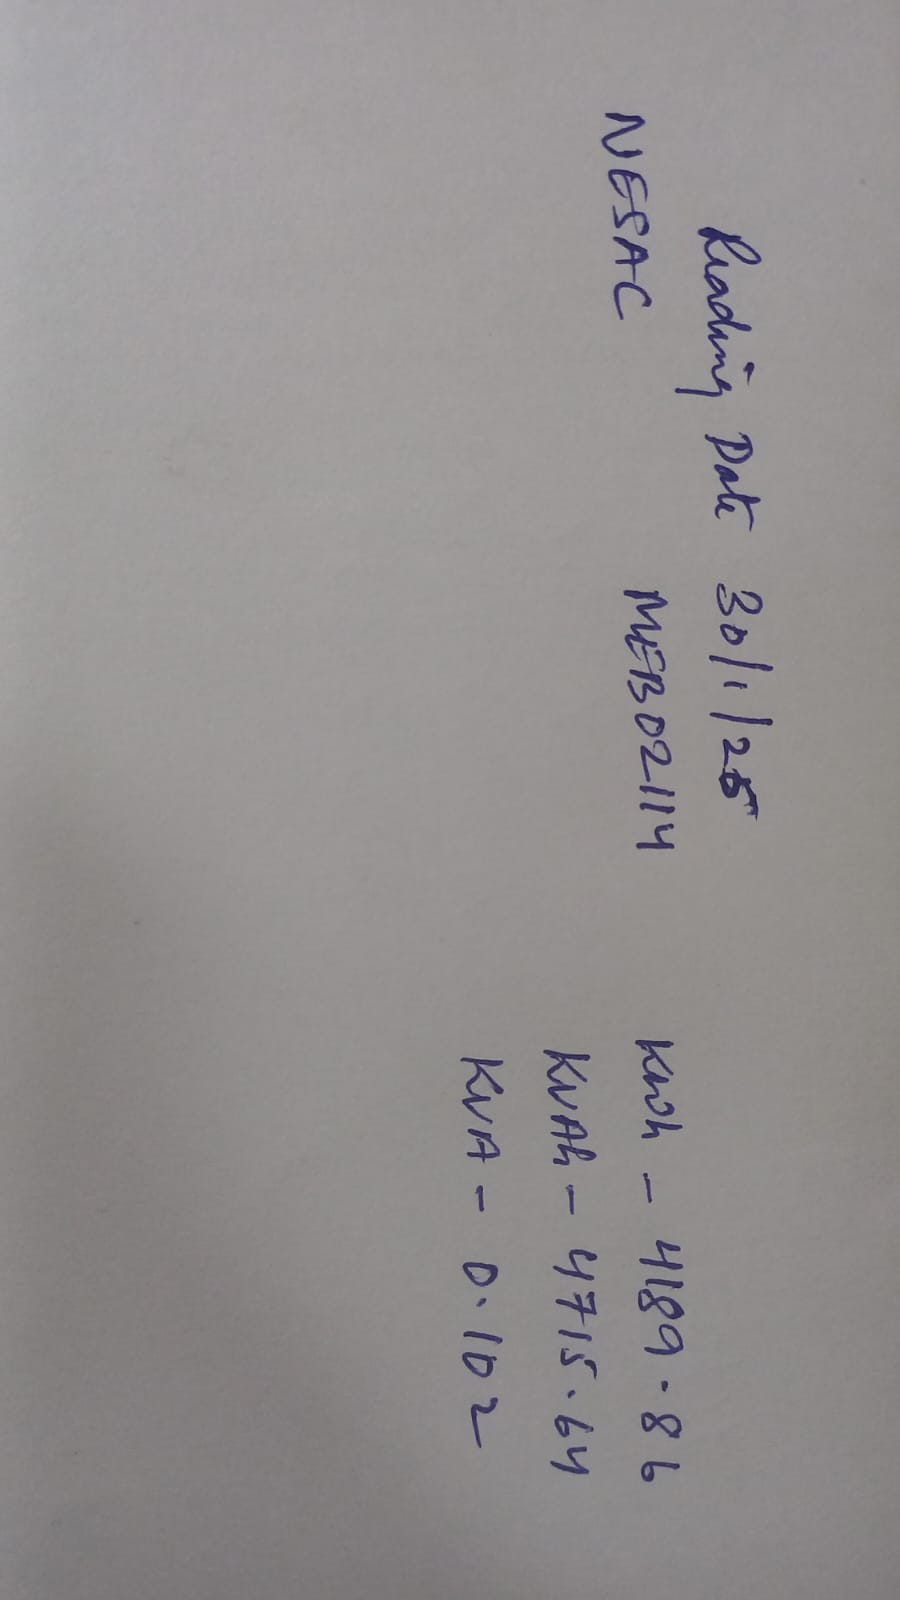 Reading Date 30/1/25
NESAC MEB02114 KWh - 4189.86
KVAh - 4715.64
KVA - 0.102